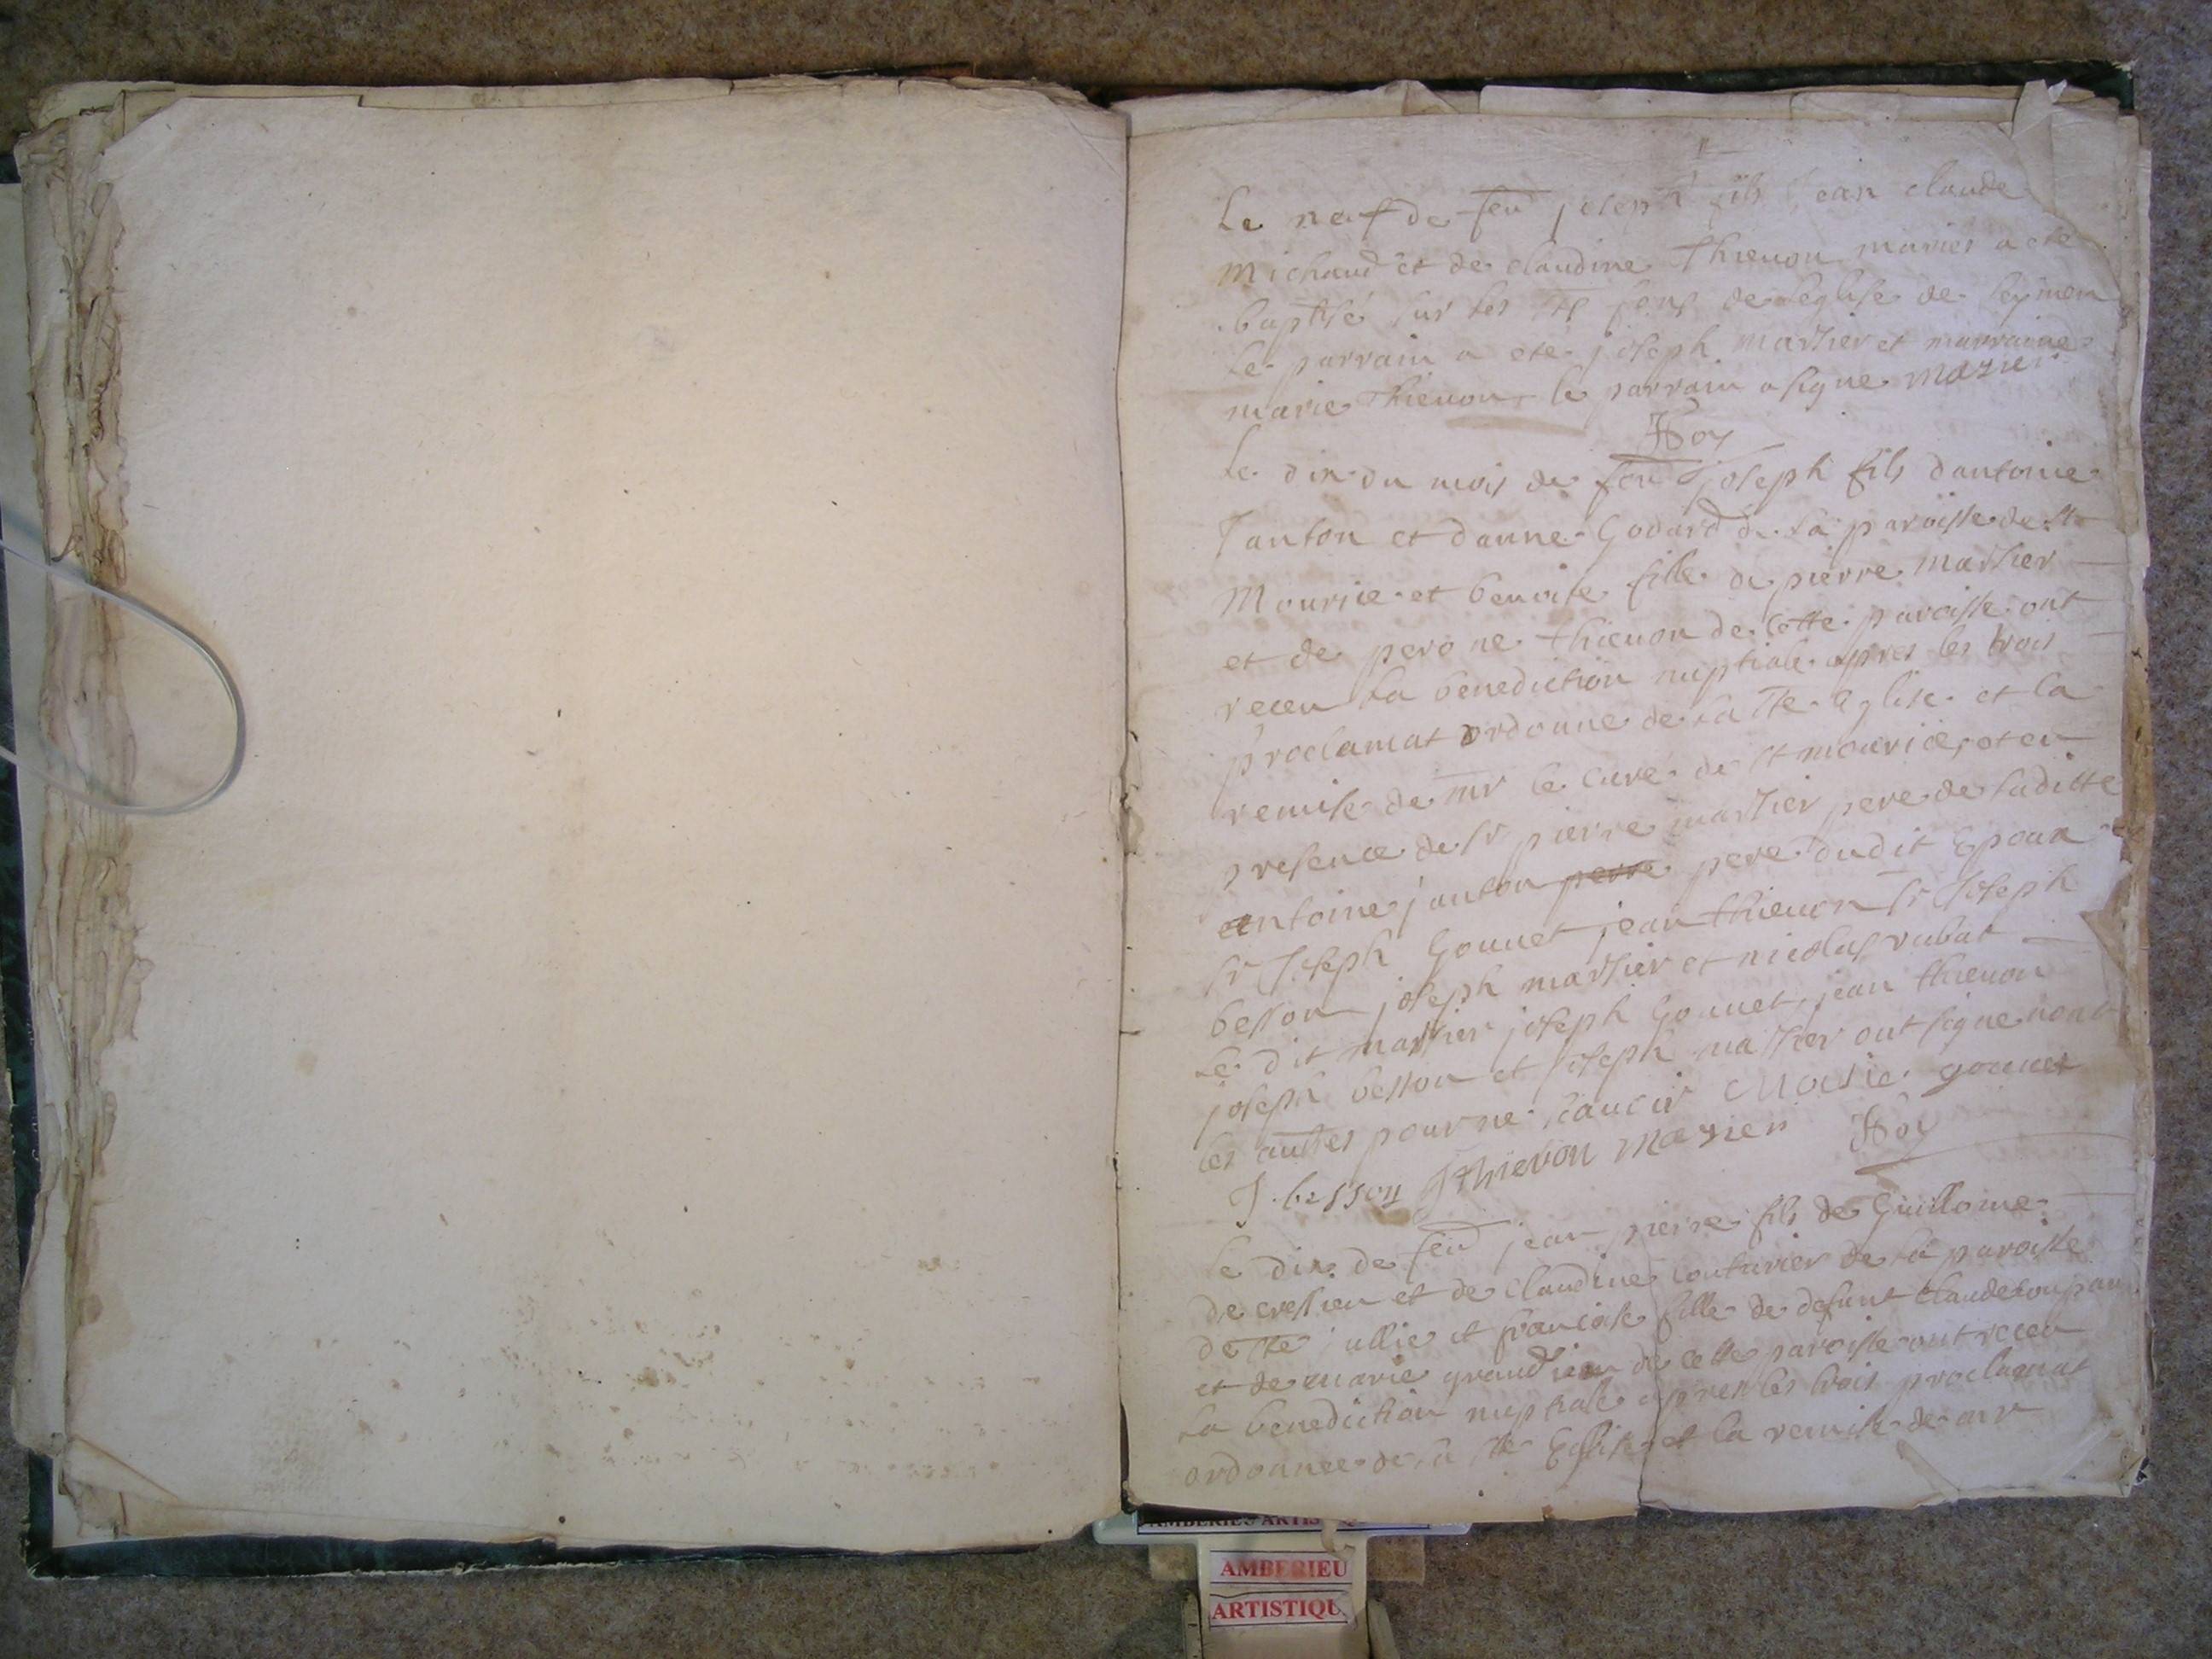 Le neuf de feu joseph fils jean claude
Michaud et de claudine Thienon mariés a eté
baptisé sur les sts fons de leglise de leymen
Le parrain a eté joseph marsier et marraine
marie Thienon le parrain a signe mazier
Roy
Le dix du mois de feu joseph fils dantoine
Janton et danne Godard de la paroisse de st
Mourice et benoite fille de pierre marsier
et de perone thienon de cette paroisse ont
receu la benediction nuptiale apres les trois
proclamat ordonne de la ste eglise et la
remise de mr le curé de st mourice et en
presence de sr pierre marsier pere de laditte
antoine janton perre pere dudit Epoux
sr Joseph Gonnet jean thienon sr Joseph
besson joseph marsier et nicolas rubat
Le dit marsier joseph Gonnet, jean thienon
joseph besson et joseph marsier ont signe non
les autres pour ne scauoir gonnet
J. besson J thievon mazier Roy
Le dix de feu jean pierre fils de Guillome
de cressieu et de claudine couturier de la paroisse
de ste jullie et francoise fille de defunt claude
et de marie de cette paroisse ont receu
La benediction nuptiale apres les trois proclamat
ordonnee de la ste Eglise et la remise de mr
AMBERIEU ARTISTIQU
AMBERIEU
ARTISTIQU